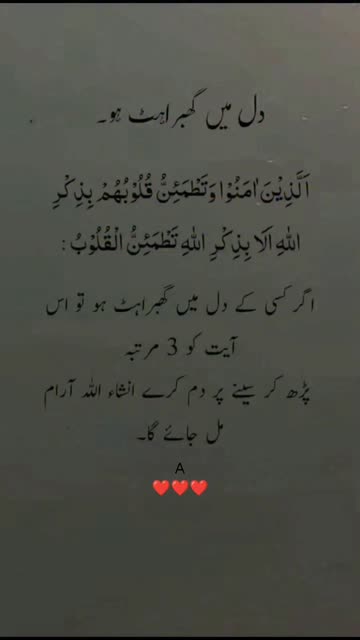 دل میں گھبراہٹ ہو۔
اَلَّذِیْنَ اٰمَنُوْا وَتَطْمَئِنُّ قُلُوْبُهُمْ بِذِكْرِ
اللّٰهِ اَلَا بِذِكْرِ اللّٰهِ تَطْمَئِنُّ الْقُلُوْبُ :
اگر کسی کے دل میں گھبراہٹ ہو تو اس
آیت کو 3 مرتبہ
پڑھ کر سینے پر دم کرے انشاء اللہ آرام
مل جائے گا۔
A
❤️❤️❤️